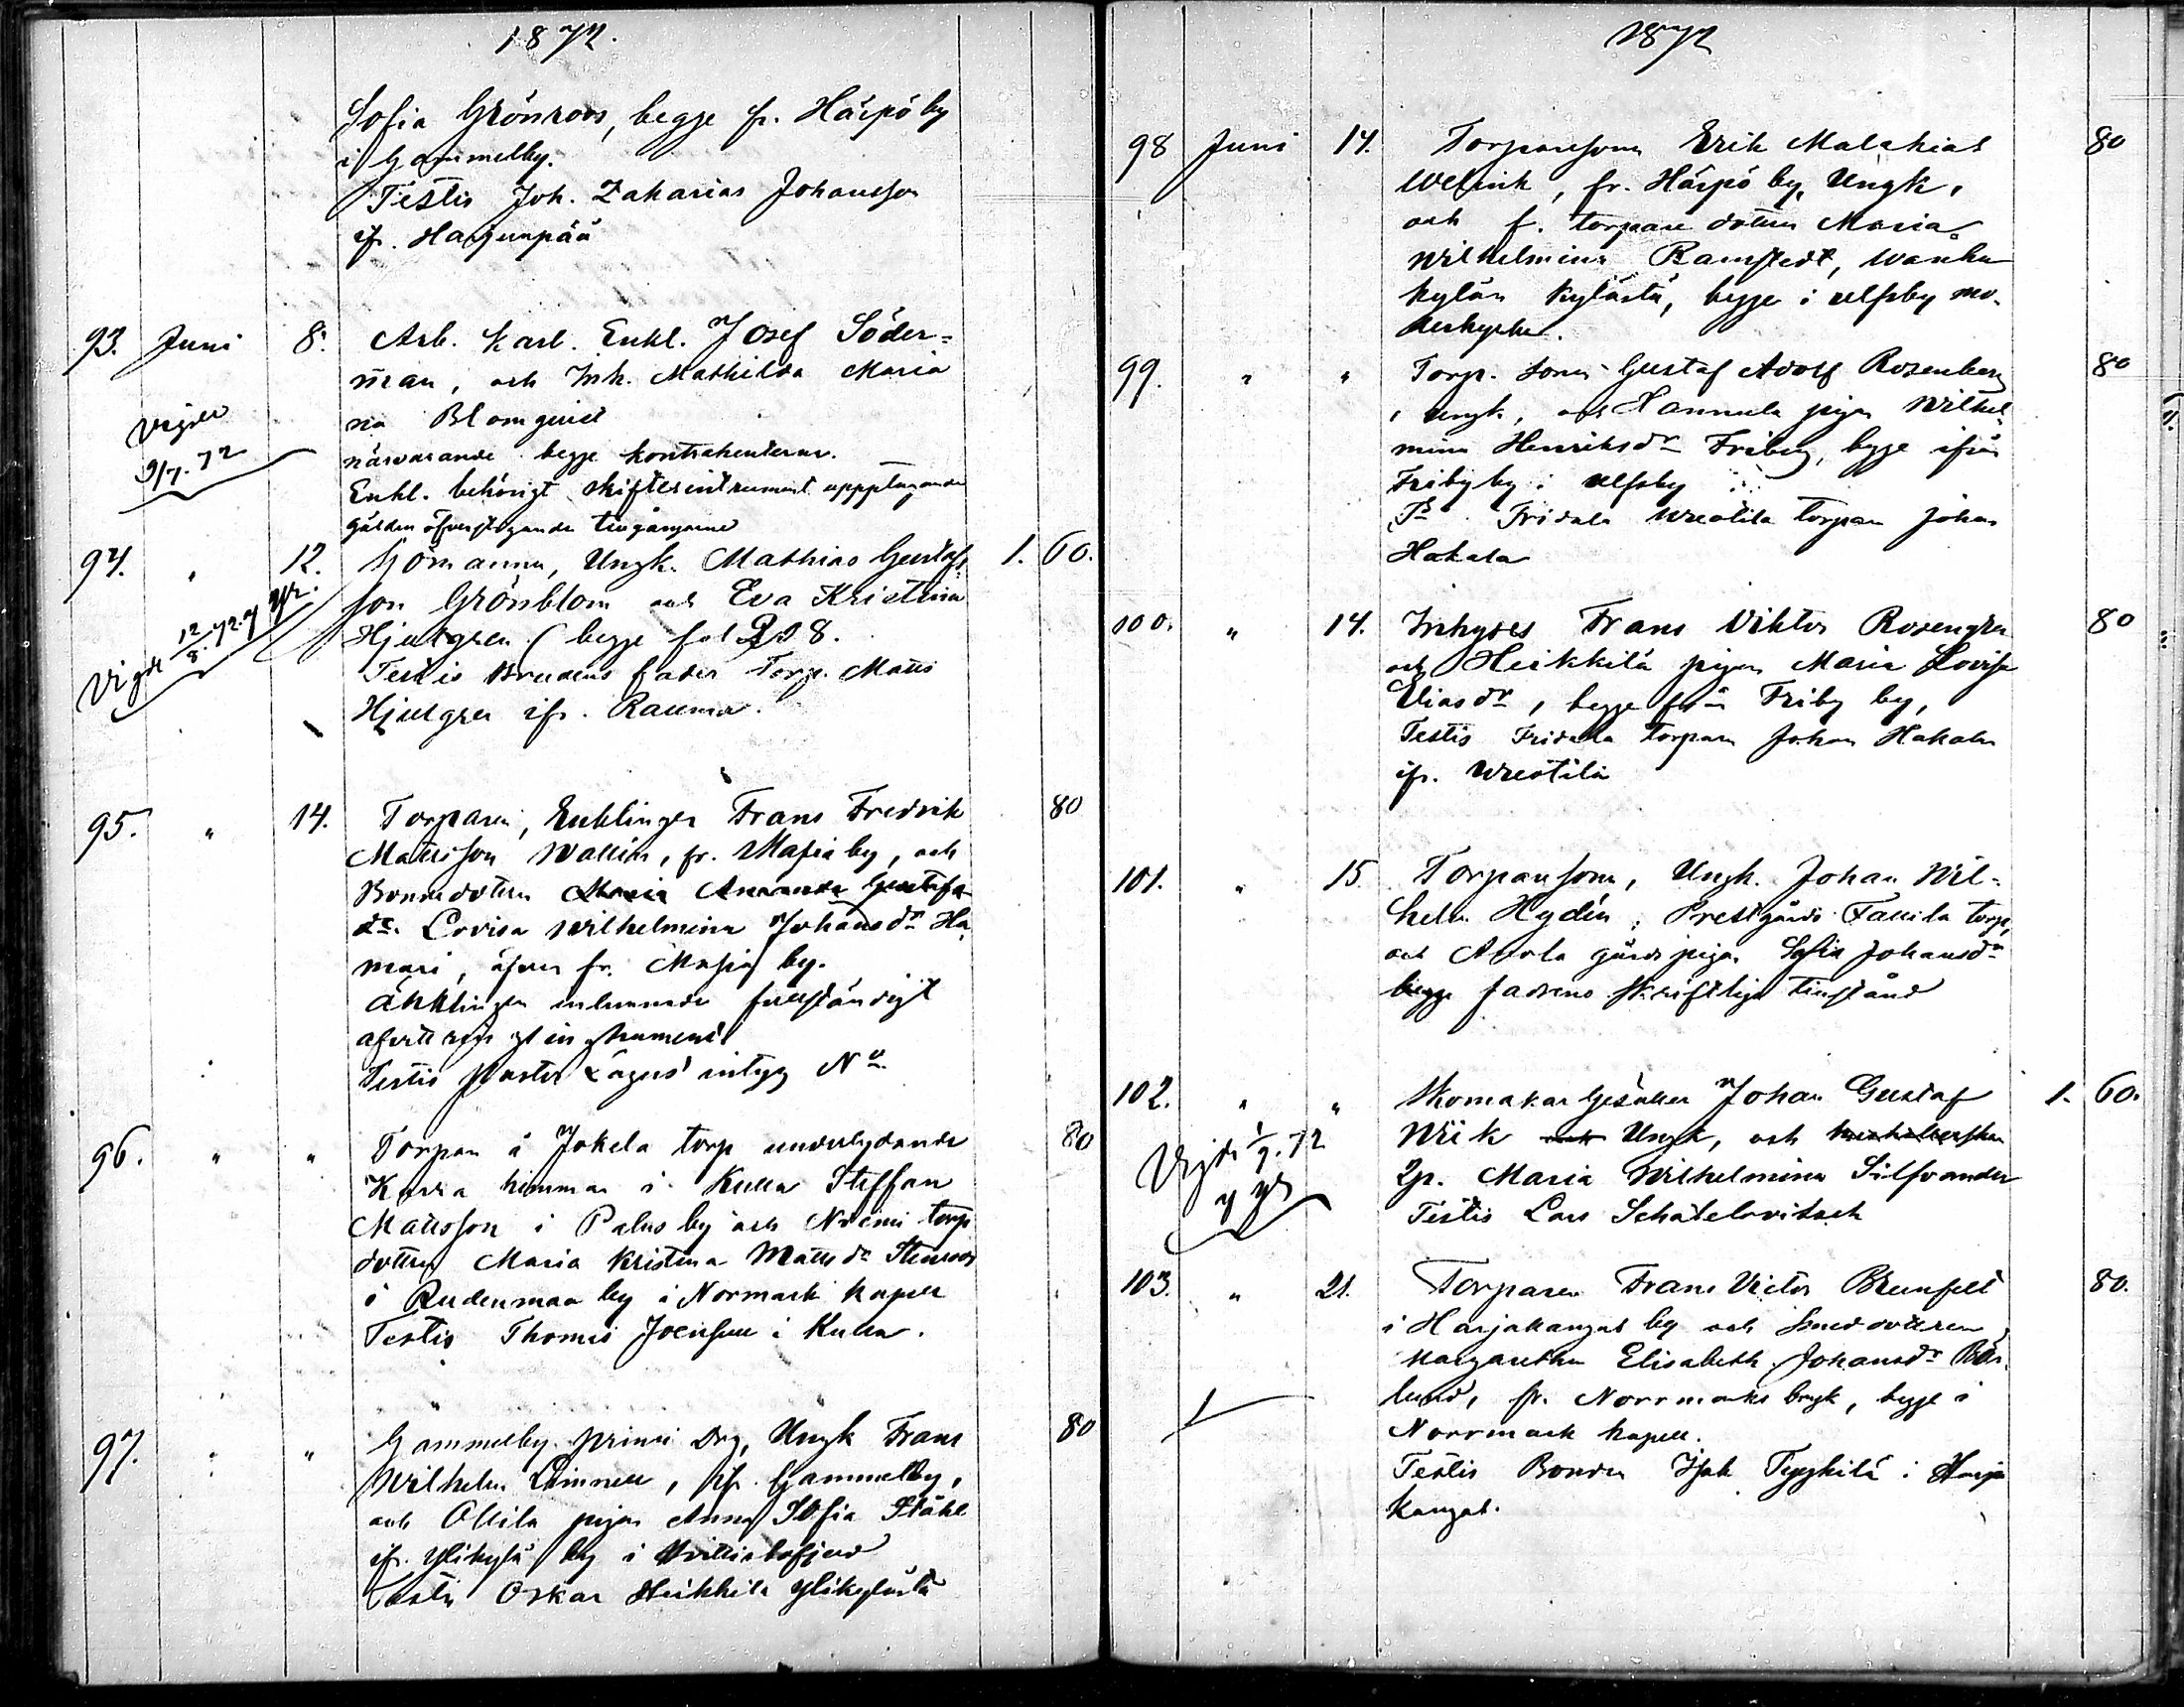 1872.
Sofia Grönroos, begge fr. Härpö by
i Gammelby.
Testis Joh. Zakarias Johansson
ifr. Harjunpää
93. Juni 8. Arb. karl. Enkl. Josef Söder=
man, och Inh. Mathilda Maria
na Blomquist
Vigde
9/7. 72
närvarande begge kontrahenterne.
Enkl. behörigt skiftesintrument uppptagande
gälden öfverstigande tillgångarne
94. " 12. Sjömannen, Ungk. Mathias Gustafs= 1. 60.
son Grönblom och Eva Kristina
Hjulgren (begge fol 208.
Vigde 12/8. 72.
Testis Brudens fader Torp. Matts
Hjulgren ifr. Rauma.
95. " 14. Torparen, Enklingen Frans Fredrik 80
Mattsson Wallin, fr. Masia by, och
Bonndottren Maria Amanda Gustafs
dr. Lovisa Wilhelmina Johansdr Ha
mari, äfven fr. Masia by.
Änklingen inlemnade fullständigt
instrument
Testis Pastor intyg No
96. " " Torpan å Jokela torp underlydande 80
hemman i Kulla Steffan
Mattsson i Palus by och Niemi torp
dottren Maria Kristina Mattsdr Stenroos
i Rudenmaa by i Norrmark kapell
Testis Thomas Joensuu i Kulla.
97. " " Gammelby Drg, Ungk Frans 80
Wilhelm Linnell, ifr. Gammelby,
och Ollila pigan Anna Sofia Ståhl
ifr. Ylikylä by i Hvittisbofjerd
Testis Oskar Heikkilä Ylikylästä
1872
98 Juni 14. Torparesonen Erik Malakias 80
fr. Härpö by, Ungk,
och f. torpare dottren Maria
Wilhelmina Ramstedt, Wanha
kylän kylästä, begge i Ulfsby mo=
derkyrka.
99. " " Torp. sonen Gustaf Adolf Rosenberg 80
, ungk, och Hannula pigan Wilhel=
mina Henriksdr Friberg, bygge ifrån
Friby by i Ulfsby
Ts Fridala torparen Johan
Hakala
100. " 14. Inhyses Frans Viktor Rosengren 80
och Heikkilä pigan Maria Lovisa
Eliasdr, begge från Friby by,
Testis Fridala torparen Johan Hakala
ifr.
101. " 15. Torparesonen, Ungk. Johan Wil=
helm Hydén, Prestgårds torp,
och Anola gårds pigan Sofia Johansdr
begge fadrens skriftliga tillstånd
102. " " Skomakar Gesällen Johan Gustaf 1. 60.
Wiik och Ungk, och
Vigde 1/7. 72
2p. Maria Wilhelmina Silfvander
Testis Lars Schatelovitsch
103. " 21. Torparen Frans Victor Brunfelt 80.
i Harjakangas by och Smeddottren
Margaretha Elisabeth Johansdr
lund, fr. Norrmarks bruk, begge i
Norrmark kapell.
Testis Bonden Isak Tyykilä i Harja
kangas.